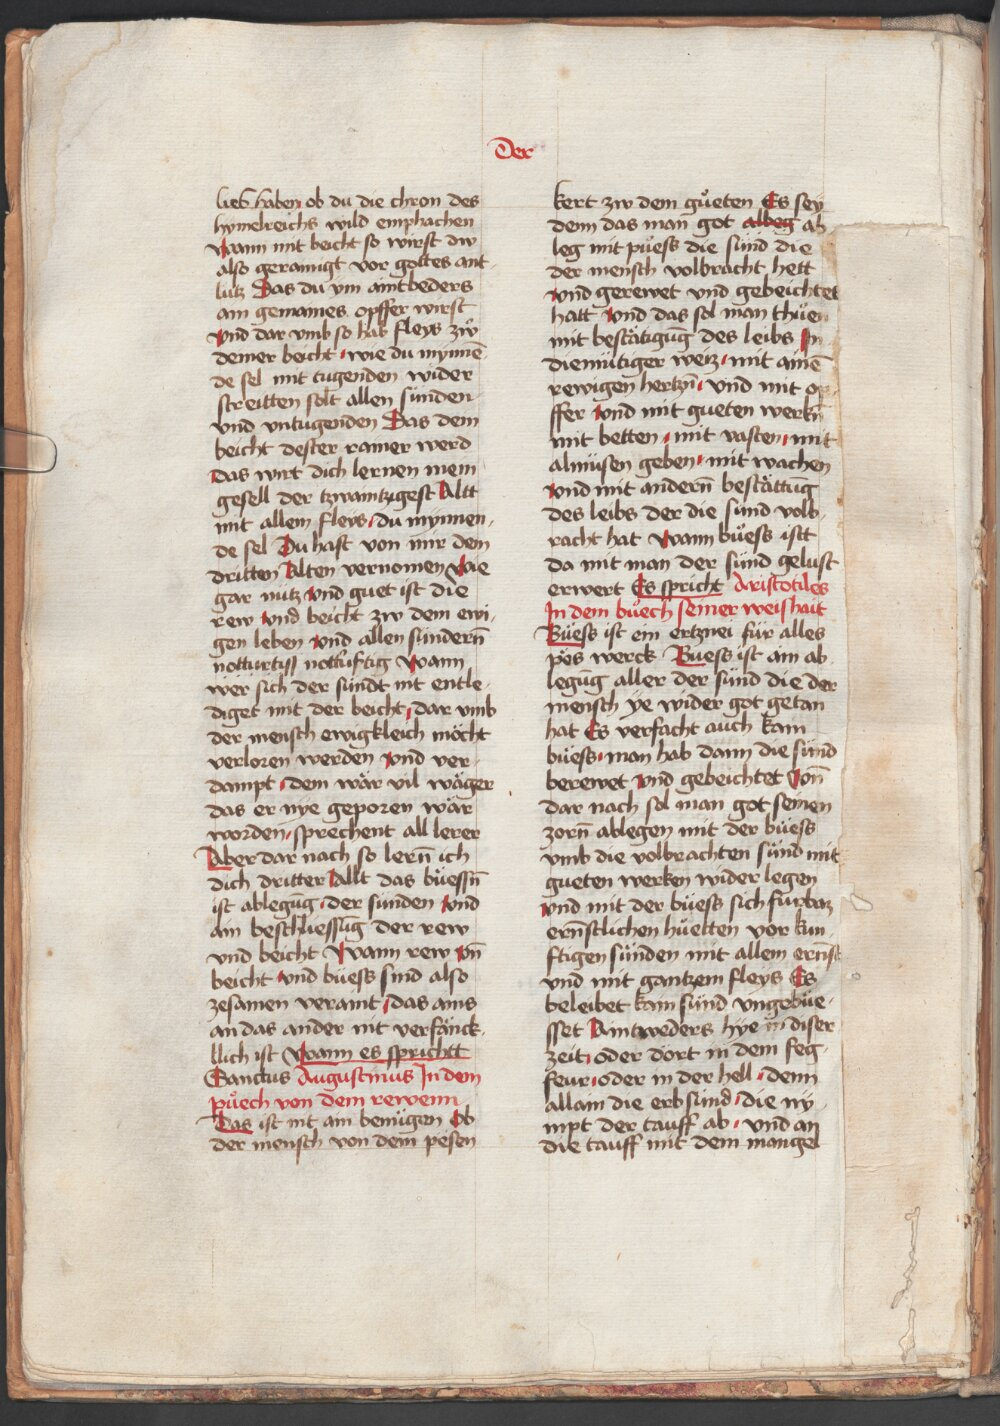 Der
lieb haben ob du die chron des
hymelreichs wild emphachen
Wann mit beicht so wirst dw
also geramigt vor gottes ant
lutz Das du ym aintbeders
ain gemaines opffer wirst
Vnd dar vmb so hab fleys zw̓
deiner beicht wie du mynnē
de sel mit tugenden wider
streitten solt allen sünden
vnd vntugenden Das dein
beicht dester rainer werd
Das wirt dich lernen mein
gesell der tzwaintzigest Altt
mit allem fleys du mynnen
de sel Du hast von mir dem
dritten Alten vernomen Wie
gar nutz vnd guet ist die
rew vnd beicht zw dem ewi
gen leben vnd allen sündern̄
notturtiss nottuftig Wann
wer sich der sündt nit entle
diget mit der beicht dar vmb
der mensch ewigkleich möcht
verloren werden vnd ver
dampt dem wär vil wäger
das er nye geporen wär
worden sprechent all lerer
Aber dar nach so lern̄ ich
dich dritter Allt das büessn̄
ist ablegūg der sünden vnd
ain beschliessūg der rew
vnd beicht Wann rew vn̄
beicht vnd büess sind also
zesamen veraint das ains
an das ander nit verfänck
llich ist Wann es sprichtt
Sanctus Augustinus In dem
pu̓ech von dem rewenn
Das ist nit ain benügen Ob
der mensch von dem pesen
kert zw dem gu̓eten Es sey
dem das man̄ got albeg ab
leg mit pu̓ess die sünd die
der mensch volbracht hett
vnd gerewet vnd gebeichtet
hatt vnd das sol man thu̓en
mit bestätigūg des leibs In
diemütiger weiz mit ainē
rewigen hertzn̄ vnd mit op
ffer vnd mit gueten werkn̄
mit betten mit vasten mit
almüsen geben mit wachen
vnd mit andern̄ bestättūg
des leibs der die sünd volb
racht hat Wann bu̓ess istt
da mit man der sünd gelust
erwert Es spricht Aristotiles
In dem bu̓ech seiner weishait
Büess ist ein ertznei für alles
pös werck Buess ist ain ab
legūg aller der sünd die der
mensch ye wider got getan
hat Es verfacht auch kain
büess man hab dann die sünd
berewet vnd gebeichtet von̄
dar nach sol man got seinen
zorn̄ ablegen mit der büess
vmb die volbrachten sünd mit
gueten werken wider legen
vnd mit der büess sich furbaz
ern̄stlichen hu̓etten vor kun
ftigen sünden mit allem ern̄st
vnd mit gantzem fleys Es
beleibet kain sünd vngebüe
sset Aintweders hye in diser
zeit oder dort in dem feg
feur oder in der hell denn
allain die erbsünd die ny
mpt der tauff ab vnd an
die tauff mit dem mangel